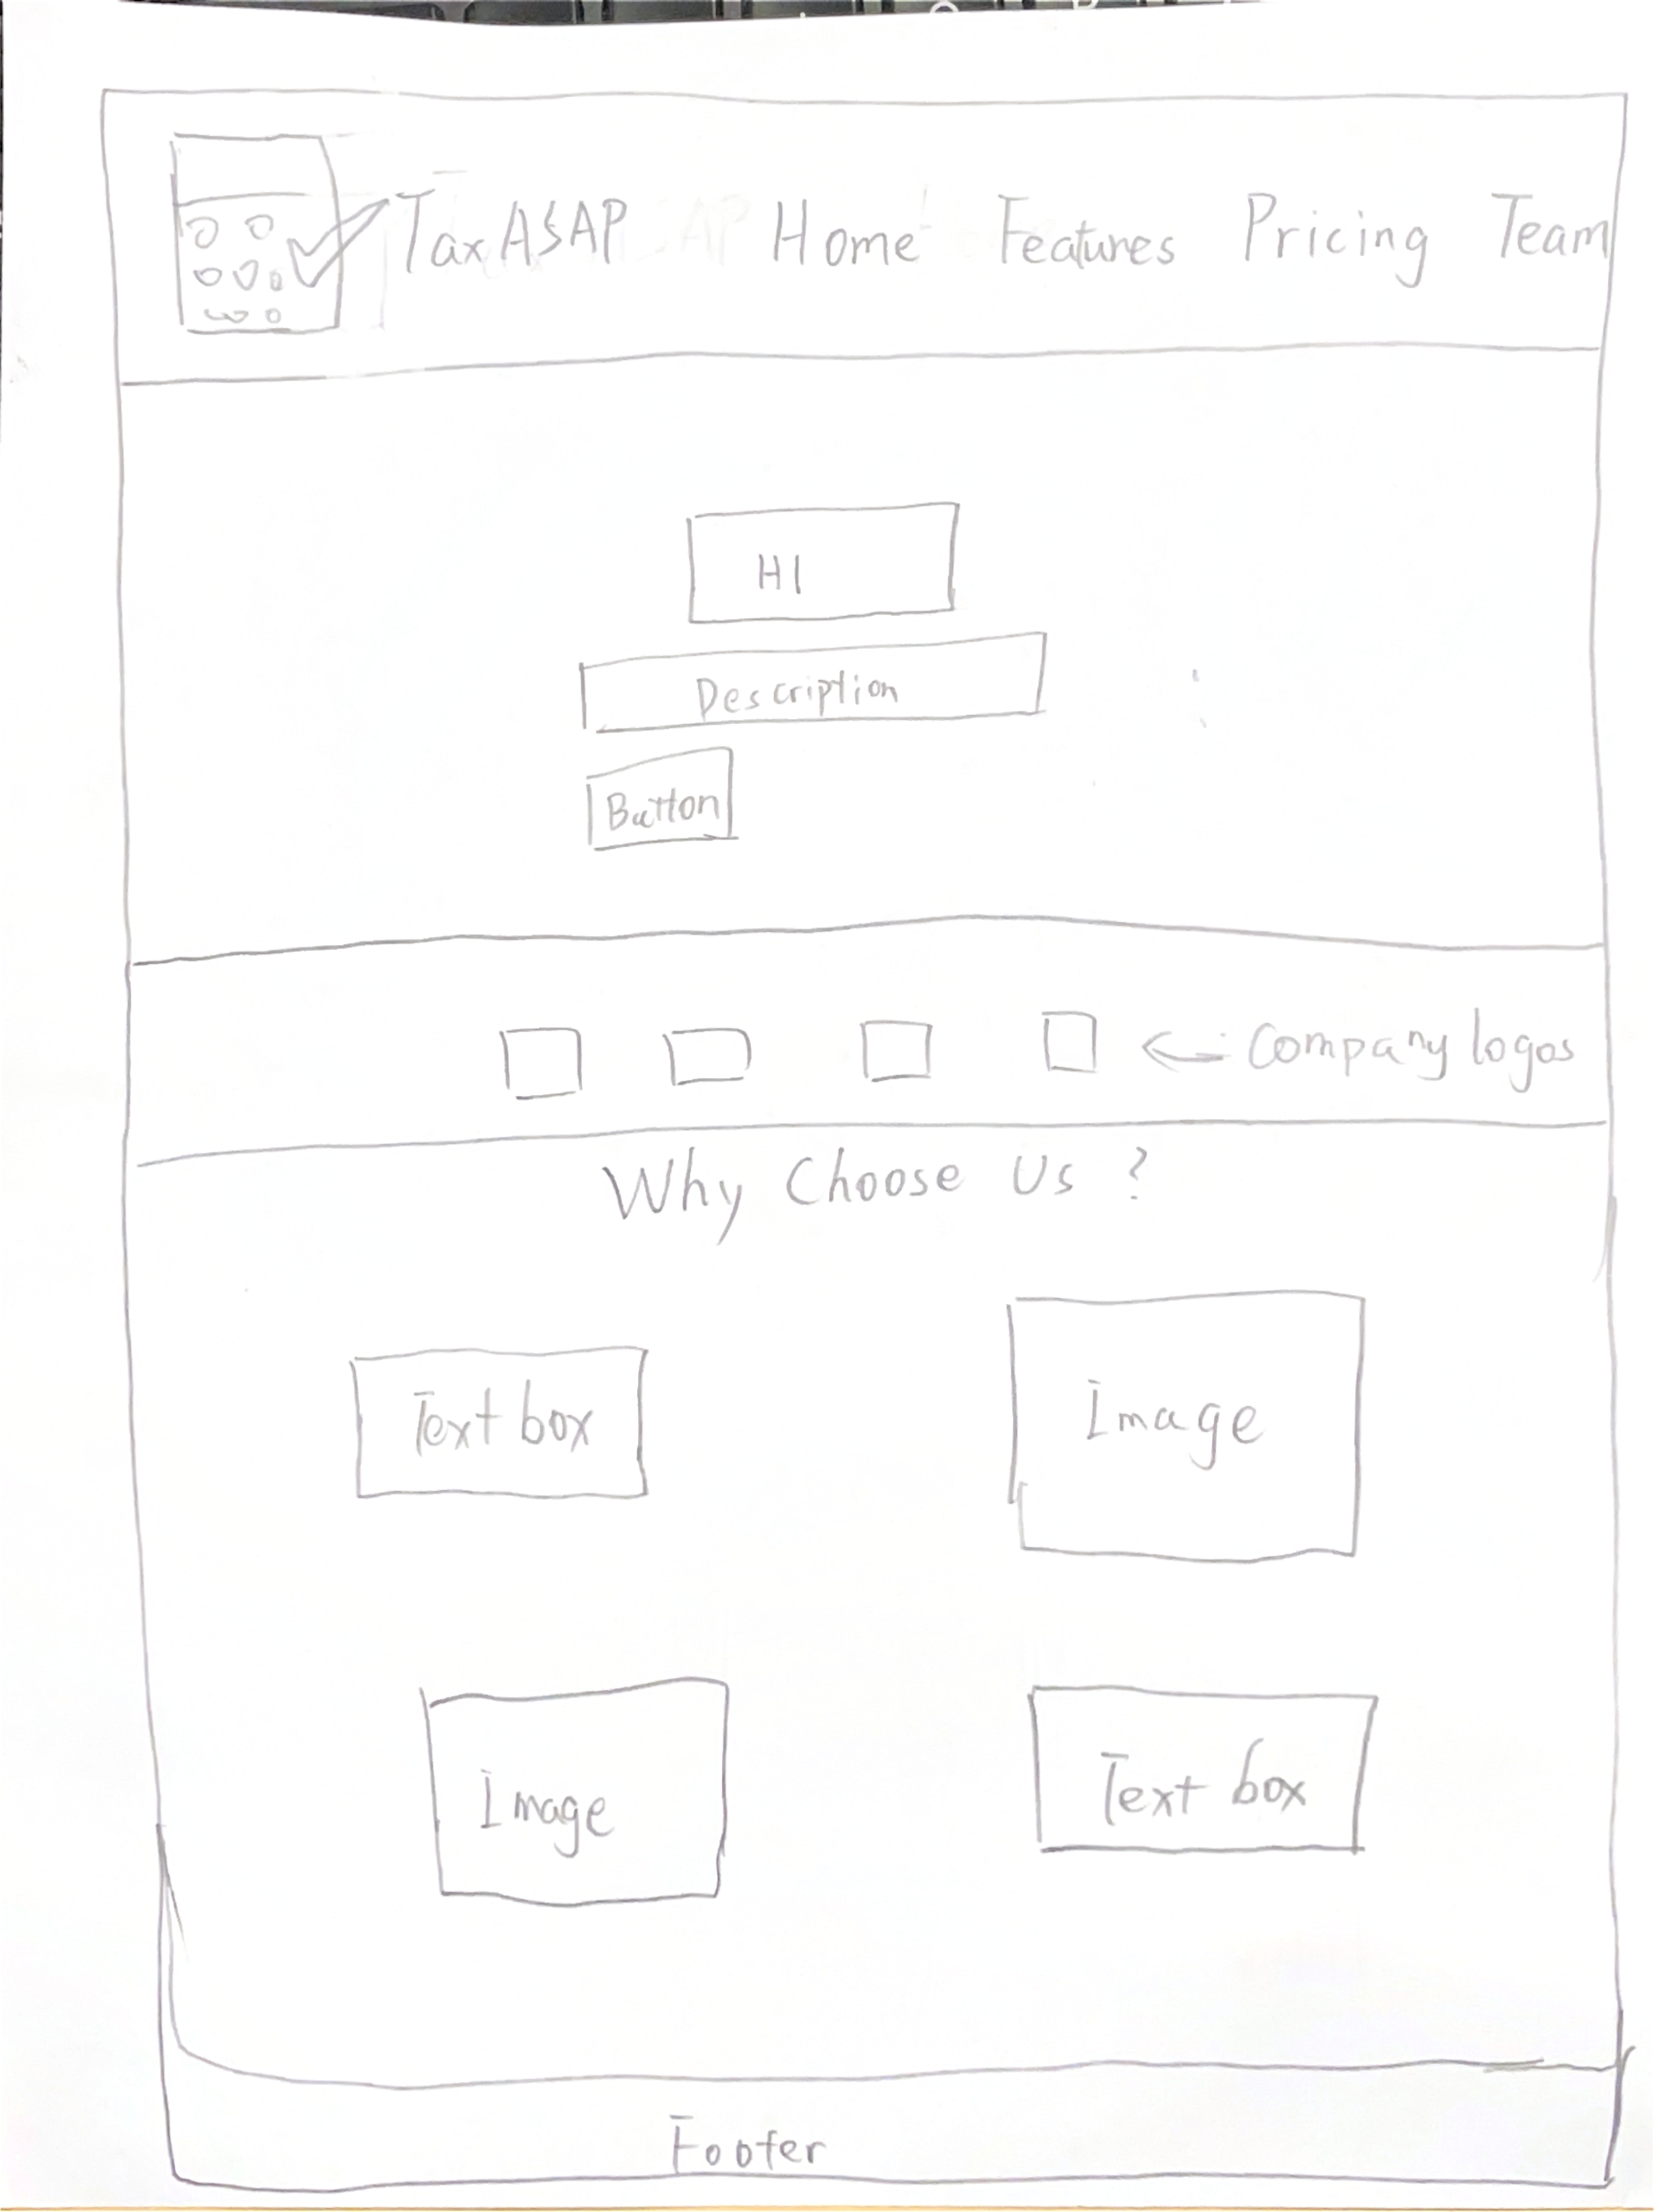 TaxASAP Home Features Pricing Team
H1
Description
Button
Company logos
Why Choose Us ?
Text box
Image
Image
Text box
Footer